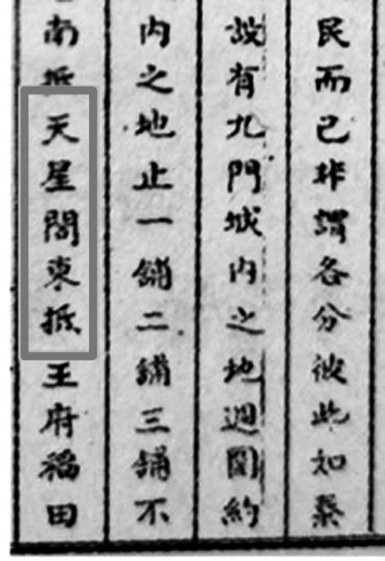 民而已非謂各分彼此如
設有九門城內之地週圍約
內之地止一舖二舖三舖不
南抵天星閣東抵王府稻田